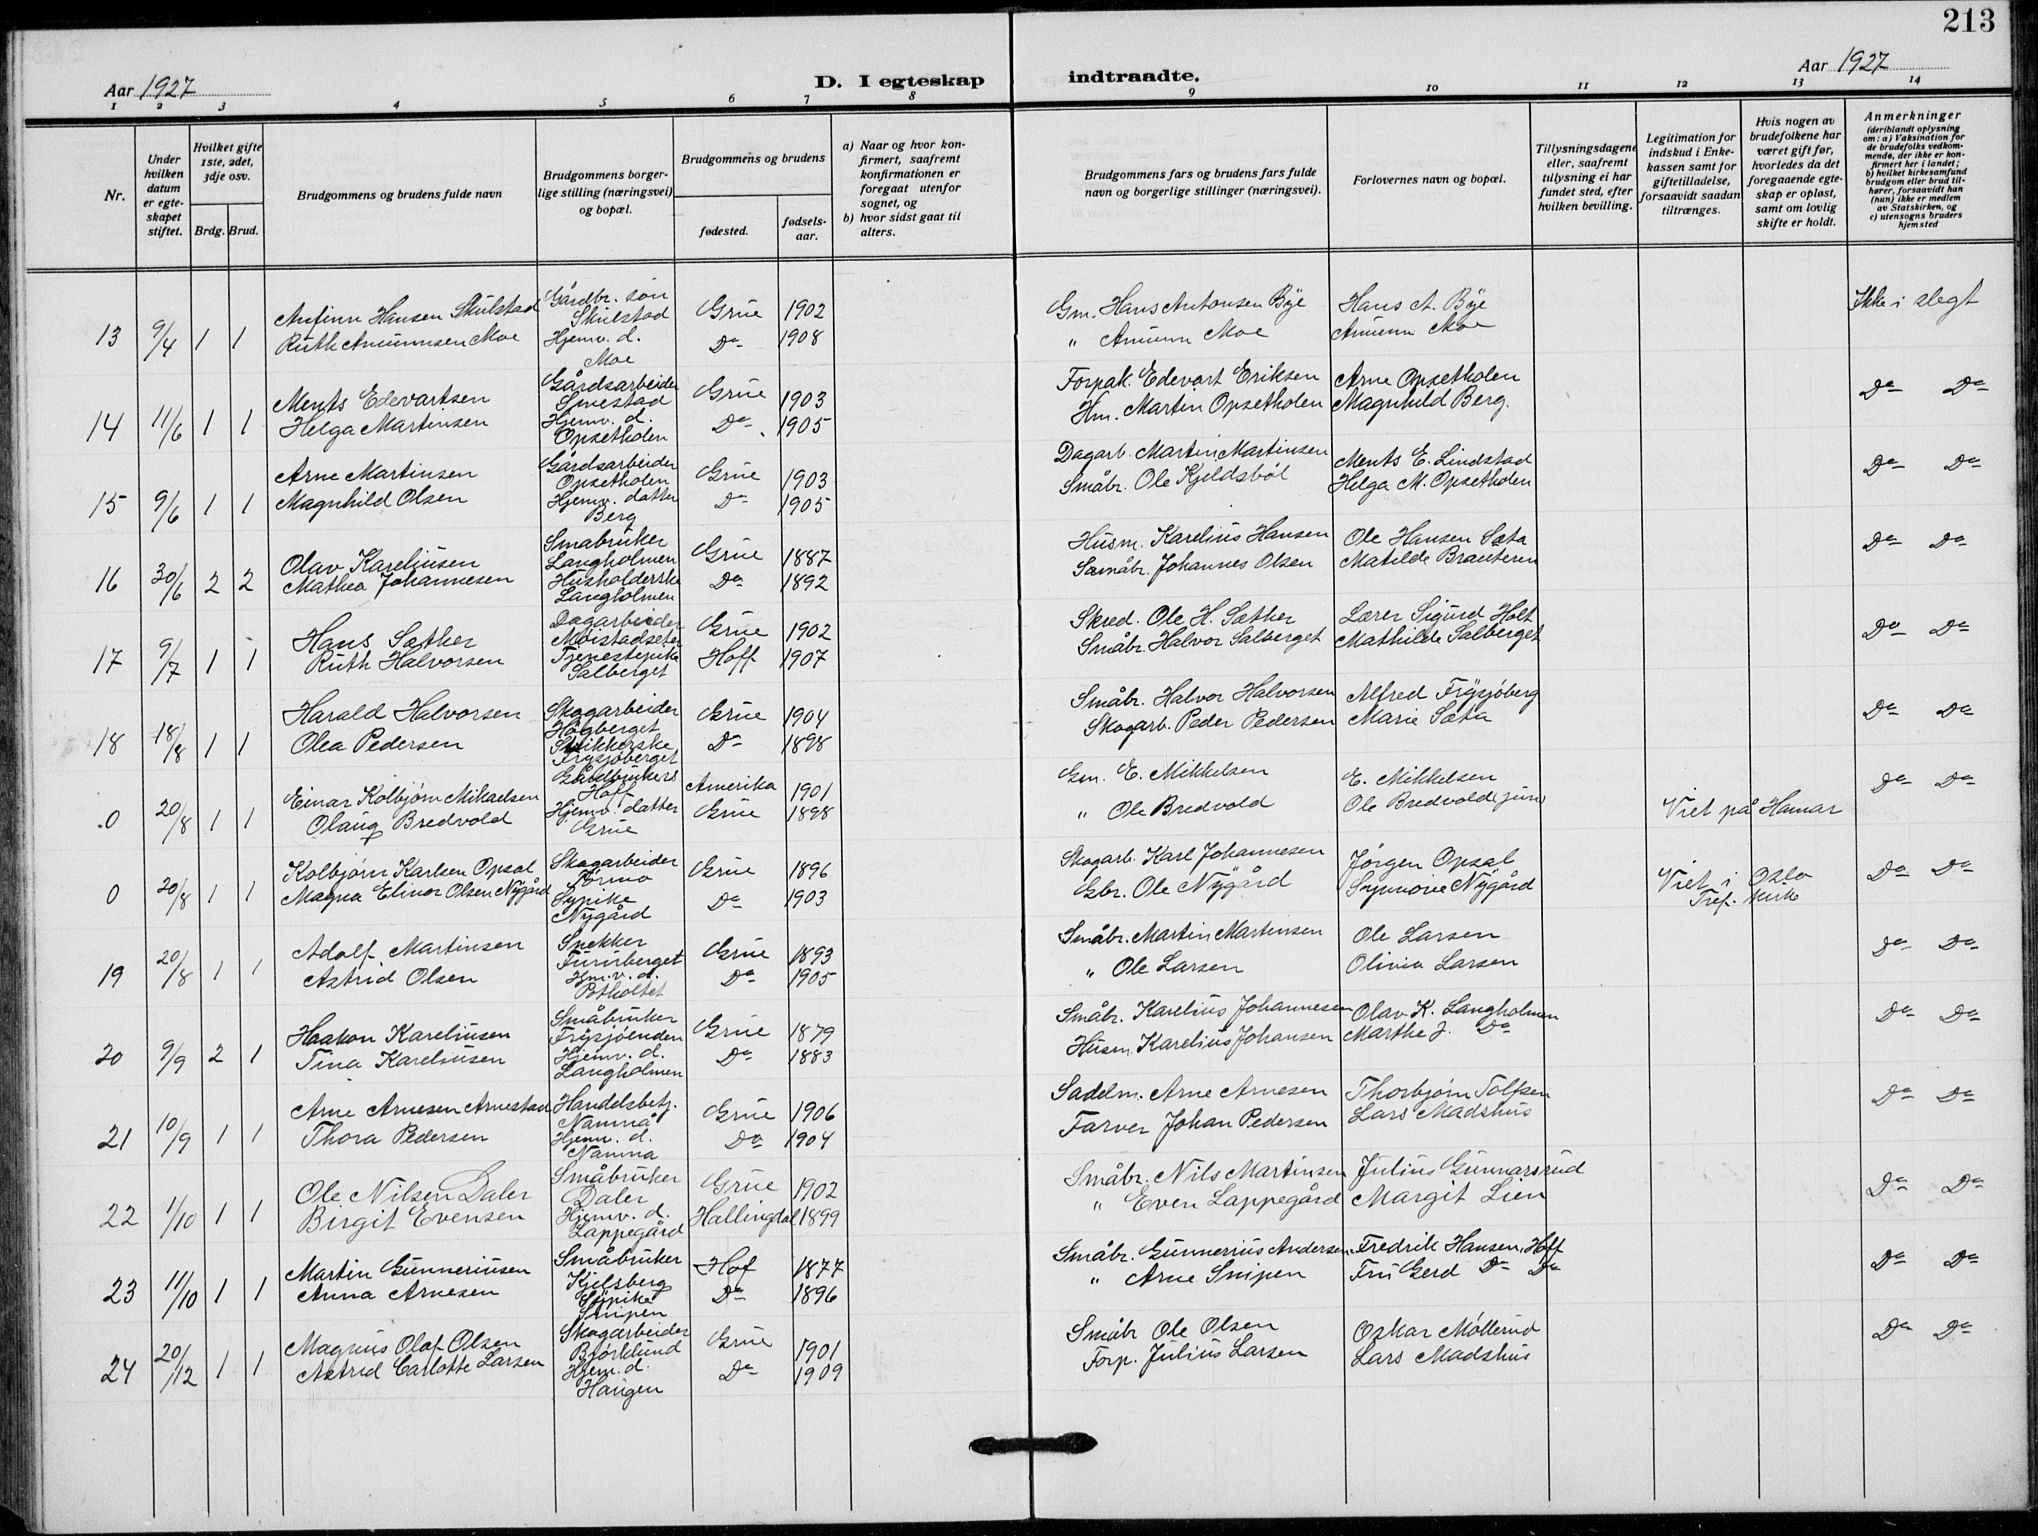 213
Aar 1927
D. I egteskap indtraadte.
Aar 1927
1 2 3 4 5 6 7 8 9 10 11 12 13 14
Nr.
Under hvilken datum er egteskapet stiftet.
Hvilket gifte 1ste, 2det, 3dje osv.
Brdg. Brud.
Brudgommens og brudens fulde navn
Brudgommens borgerlige stilling (næringsvei) og bopæl.
Brudgommens og brudens
fødested.
fødselsaar.
a) Naar og hvor konfirmert, saafremt konfirmationen er foregaat utenfor sognet, og
b) hvor sidst gaat til alters.
Brudgommens fars og brudens fars fulde navn og borgerlige stillinger (næringsvei).
Forlovernes navn og bopæl.
Tillysningsdagene eller, saafremt tillysning ei har fundet sted, efter hvilken bevilling.
Legitimation for indskud i Enkekassen samt for giftetilladelse, forsaavidt saadan tiltrænges.
Hvis nogen av brudefolkene har været gift før, hvorledes da det foregaaende egteskap er opløst, samt om lovlig skifte er holdt.
Anmerkninger
(deriblandt oplysning om: a) Vaksination for de brudefolks vedkommende, der ikke er konfirmert her i landet; b) hvilket kirkesamfund brudgom eller brud tilhører, forsaavidt han (hun) ikke er medlem av Statskirken, og c) utensogns bruders hjemsted
13 9/4 1 1
Anfinn Hansen Skulstad Gårdbr. søn Skulstad Grue 1902 Gm. Hans Antonsen Bye Hans A. Bye Ikke i slegt
Ruth Amundsen Moe Hjemv. d. Moe Do 1908 " Amunn Moe Amunn Moe
14 11/6 1 1
Ments Edevartsen Gårdsarbeider Grue 1903 Forpak. Edevart Eriksen Arne Opsetholen Do Do
Helga Martinsen Hjemv. d. Opsetholen Do 1905 Hm. Martin Opsetholen Magnhild Berg.
15 9/6 1 1
Arne Martinsen Gårdsarbeider Opsetholen Grue 1903 Dagarb. Martin Martinsen Ments E. Lindstad Do Do
Magnhild Olsen Hjemv. datter Berg Do 1905 Småbr. Ole Kjeldsbøl Helga M. Opsetholen
16 30/6 2 2
Olav Kareliusen Småbruker Langholmen Grue 1887 Husm. Karelius Hansen Ole Hansen Sæta Do Do
Mathea Johannesen Husholderske Langholmen Do 1892 Småbr. Johannes Olsen Matilde Brauteren
17 9/7 1 1
Hans Sæther Dagarbeider Grue 1902 Skred. Ole H. Sæther Lærer Sigurd Holt Do Do
Ruth Halvorsen Tjenestepike Salberget Hoff 1907 Småbr. Halvor Salberget Mathilde Salberget
18 18/8 1 1
Harald Halvorsen Skogarbeider Høgberget Grue 1904 Småbr. Halvor Halvorsen Alfred Frysjøberg Do Do
Olea Pedersen Strikkerske Frysjøberget Do 1898 Skogarb. Peder Pedersen Marie Sæta
0 20/8 1 1
Einar Kolbjørn Mikaelsen Gårdbrukers Hoff Amerika 1901 Gm. E. Mikkelsen E. Mikkelsen Do Do
Olaug Bredvold Hjemv. datter Grue Grue 1898 " Ole Bredvold Ole Bredvold jun Viet på Hamar
0 20/8 1 1
Kolbjørn Karlsen Opsal Skogarbeider Grue 1896 Skogarb. Karl Johannesen Jørgen Opsal Do Do
Magna Elinor Olsen Nygård Sypike Nygård Do 1903 Gbr. Ole Nygård Synnøve Nygård Viet i Oslo Tref. kirke
19 20/8 1 1
Adolf Martinsen Snekker Furuberget Grue 1893 Småbr. Martin Martinsen Ole Larsen Do Do
Astrid Olsen Hm. v. d. Potholtet Do 1905 " Ole Larsen Olivia Larsen
20 9/9 2 1
Haakon Kareliusen Småbruker Frysjøenden Grue 1879 Småbr. Karelius Johannesen Olav K. Langholmen Do Do
Tina Kareliusen Hjemv. d. Langholmen Do 1883 Husm. Karelius Johansen Marthe J. Do
21 10/9 1 1
Arne Arnesen Arnestad Handelsbetj. Namnå Grue 1906 Sadelm. Arne Arnesen Thorbjørn Tolfsen Do Do
Thora Pedersen Hjemv. d. Namnå Do 1904 Farver Johan Pedersen Lars Madshus
22 1/10 1 1
Ole Nilsen Daler Småbruker Daler Grue 1902 Småbr. Nils Martinsen Julius Gunnarsrud Do Do
Birgit Evensen Hjemv. d. Lappegård Hallingdal 1899 " Even Lappegård Margit Lien
23 11/10 1 1
Martin Gunneriusen Småbruker Kjelsberg Hof 1877 Småbr. Gunnerius Andersen Fredrik Hansen, Hoff Do Do
Anna Arnesen Sypike Snipen Do 1896 " Arne Snipen Fru Gerd Do Do
24 20/12 1 1
Magnus Olaf Olsen Skogarbeider Bjørklund Grue 1901 Småbr Ole Olsen Oskar Møllerud Do Do
Astrid Carlotte Larsen Hjem. d. Haugen Do 1909 Forp. Julius Larsen Lars Madshus